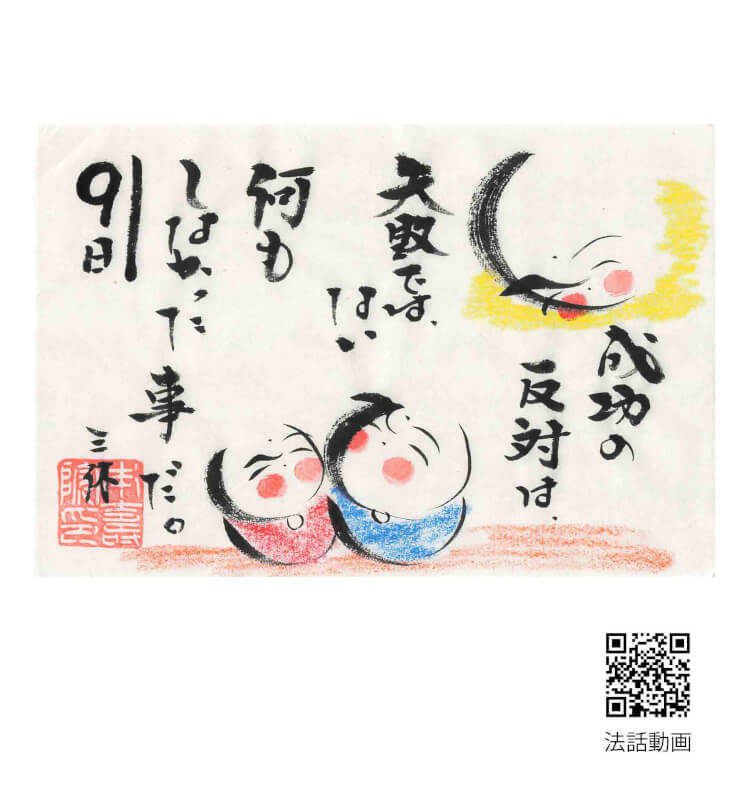 成功の
反対は、
失敗では、
ない
何も
しなかった
事だ。
19日
法話動画